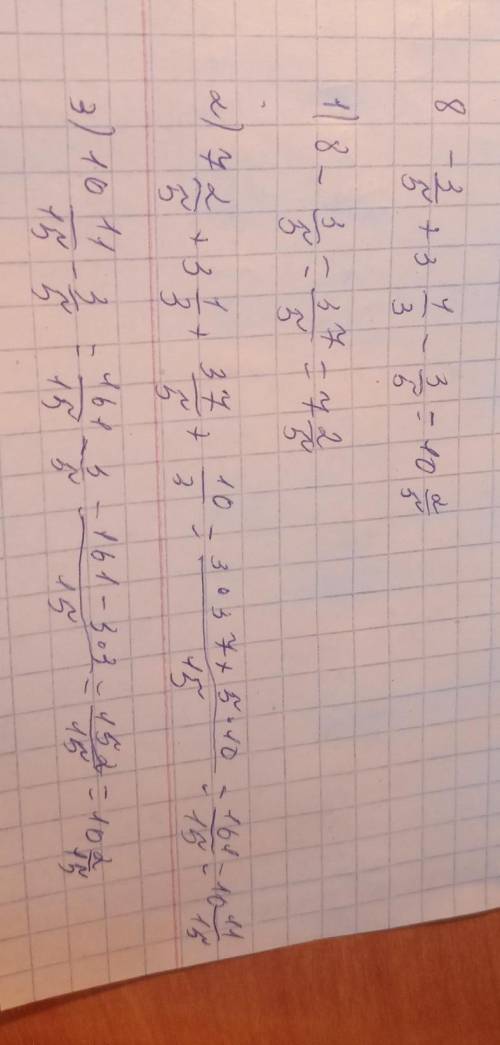 8 - 3/5 + 3 1/3 - 3/5 = 10 2/5
1) 8 - 3/5 = 37/5 = 7 2/5
2) 7 2/5 + 3 1/3 + 37/5 + 10/3 = 3·37+5·10/15 = 161/15 = 10 11/15
3) 10 11/15 - 3/5 = 161/15 - 3/5 = 161-3·3/15 = 152/15 = 10 2/15